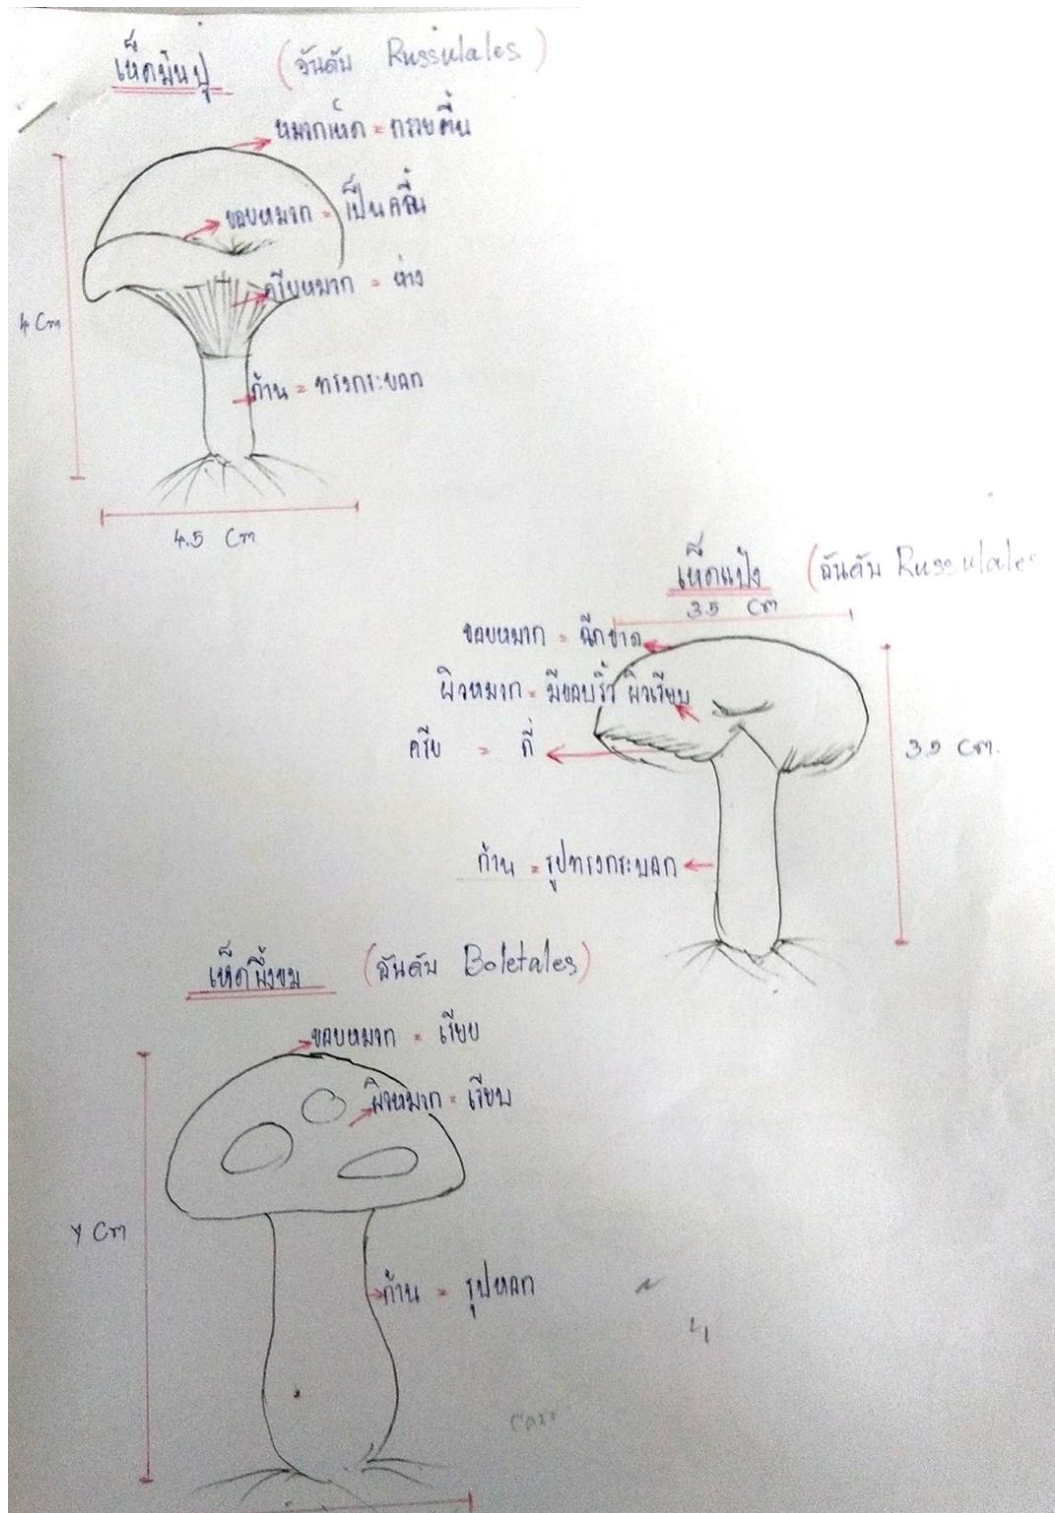 เห็ดมันปู (อันดับ Russulales)
หมวกเห็ด = กรวยตื้น
ขอบหมวก = เป็นคลื่น
ครีบหมวก = ห่าง
4 Cm
ก้าน = ทรงกระบอก
4.5 Cm
เห็ดแป้ง (อันดับ Russulales
3.5 Cm
ขอบหมวก = ฉีกขาด
ผิวหมวก = มีขอบริ้ว ผิวเรียบ
ครีบ = ถี่
3.5 Cm.
ก้าน = รูปทรงกระบอก
เห็ดผึ้งขม (อันดับ Boletales)
ขอบหมวก = เรียบ
ผิวหมวก = เรียบ
Cm
ก้าน = รูปหลอก